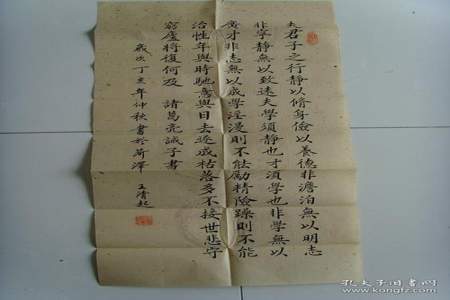 夫君子之行静以脩身儉以養德非澹泊無以明志
非寧靜無以致遠夫學須靜也才須學也非學無以
廣才非志無以成學淫漫則不能勵精險躁則不能
治性年與時馳意與日去遂成枯落多不接世悲守
窮廬將復何及 諸葛亮誡子書
歲次丁亥年仲秋書於菏澤 王清起
孔夫子旧书网
www.kongfz.com